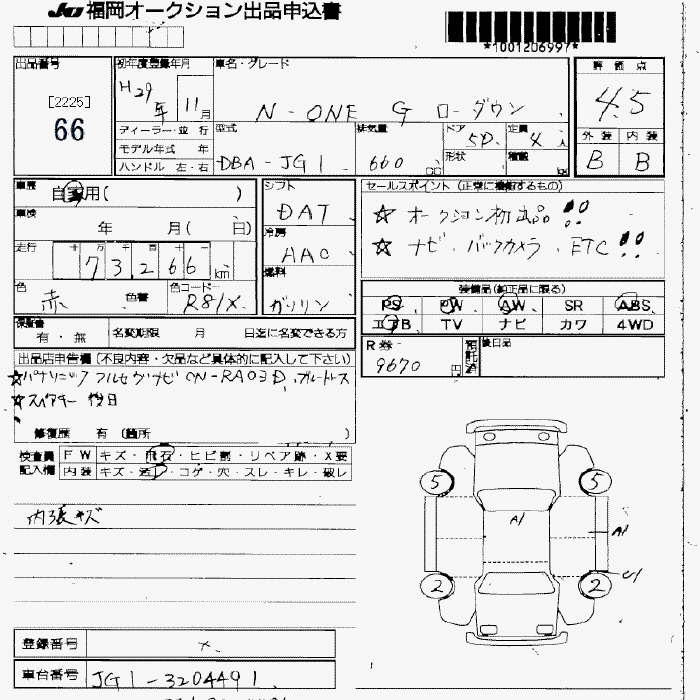 JU 福岡オークション出品申込書
*1001206997*
出品番号
[2225]
66
初年度登録年月
H29年 11月
車名・グレード
N-ONE G ローダウン
評価点
4.5
ディーラー・並行
モデル年式 年
ハンドル 左・右
型式
DBA-JG1
排気量
660 cc
ドア
5D
形状
定員
4人
積載
kg
外装 内装
B B
車歴
自家用( )
車検
年 月( 日)
走行
十 万 千 百 十 一
73266 km
色
赤 色番
色コード
R81X
シフト
DAT
冷房
AAC
燃料
ガソリン
セールスポイント (正常に機能するもの)
☆ オークション初出品!!
☆ ナビ・バックカメラ ETC!!
装備品(純正品に限る)
PS PW AW SR ABS
エアB TV ナビ カワ 4WD
保証書
有・無
名変期限 月 日迄に名変できる方
R券
9670円
預託済
後日品
出品店申告欄 (不良内容・欠品など具体的に記入して下さい)
☆パナソニック フルセグナビ CN-RA03D, ブルートゥース
☆スペアキー 後日
修復歴 有 (箇所 )
検査員
記入欄
FW キズ・飛石・ヒビ割・リペア跡・X要
内装 キズ・汚レ・コゲ・穴・スレ・キレ・破レ
内張キズ
5 5
A1
A1
U1
2 2
登録番号
車台番号 JG1-3204491